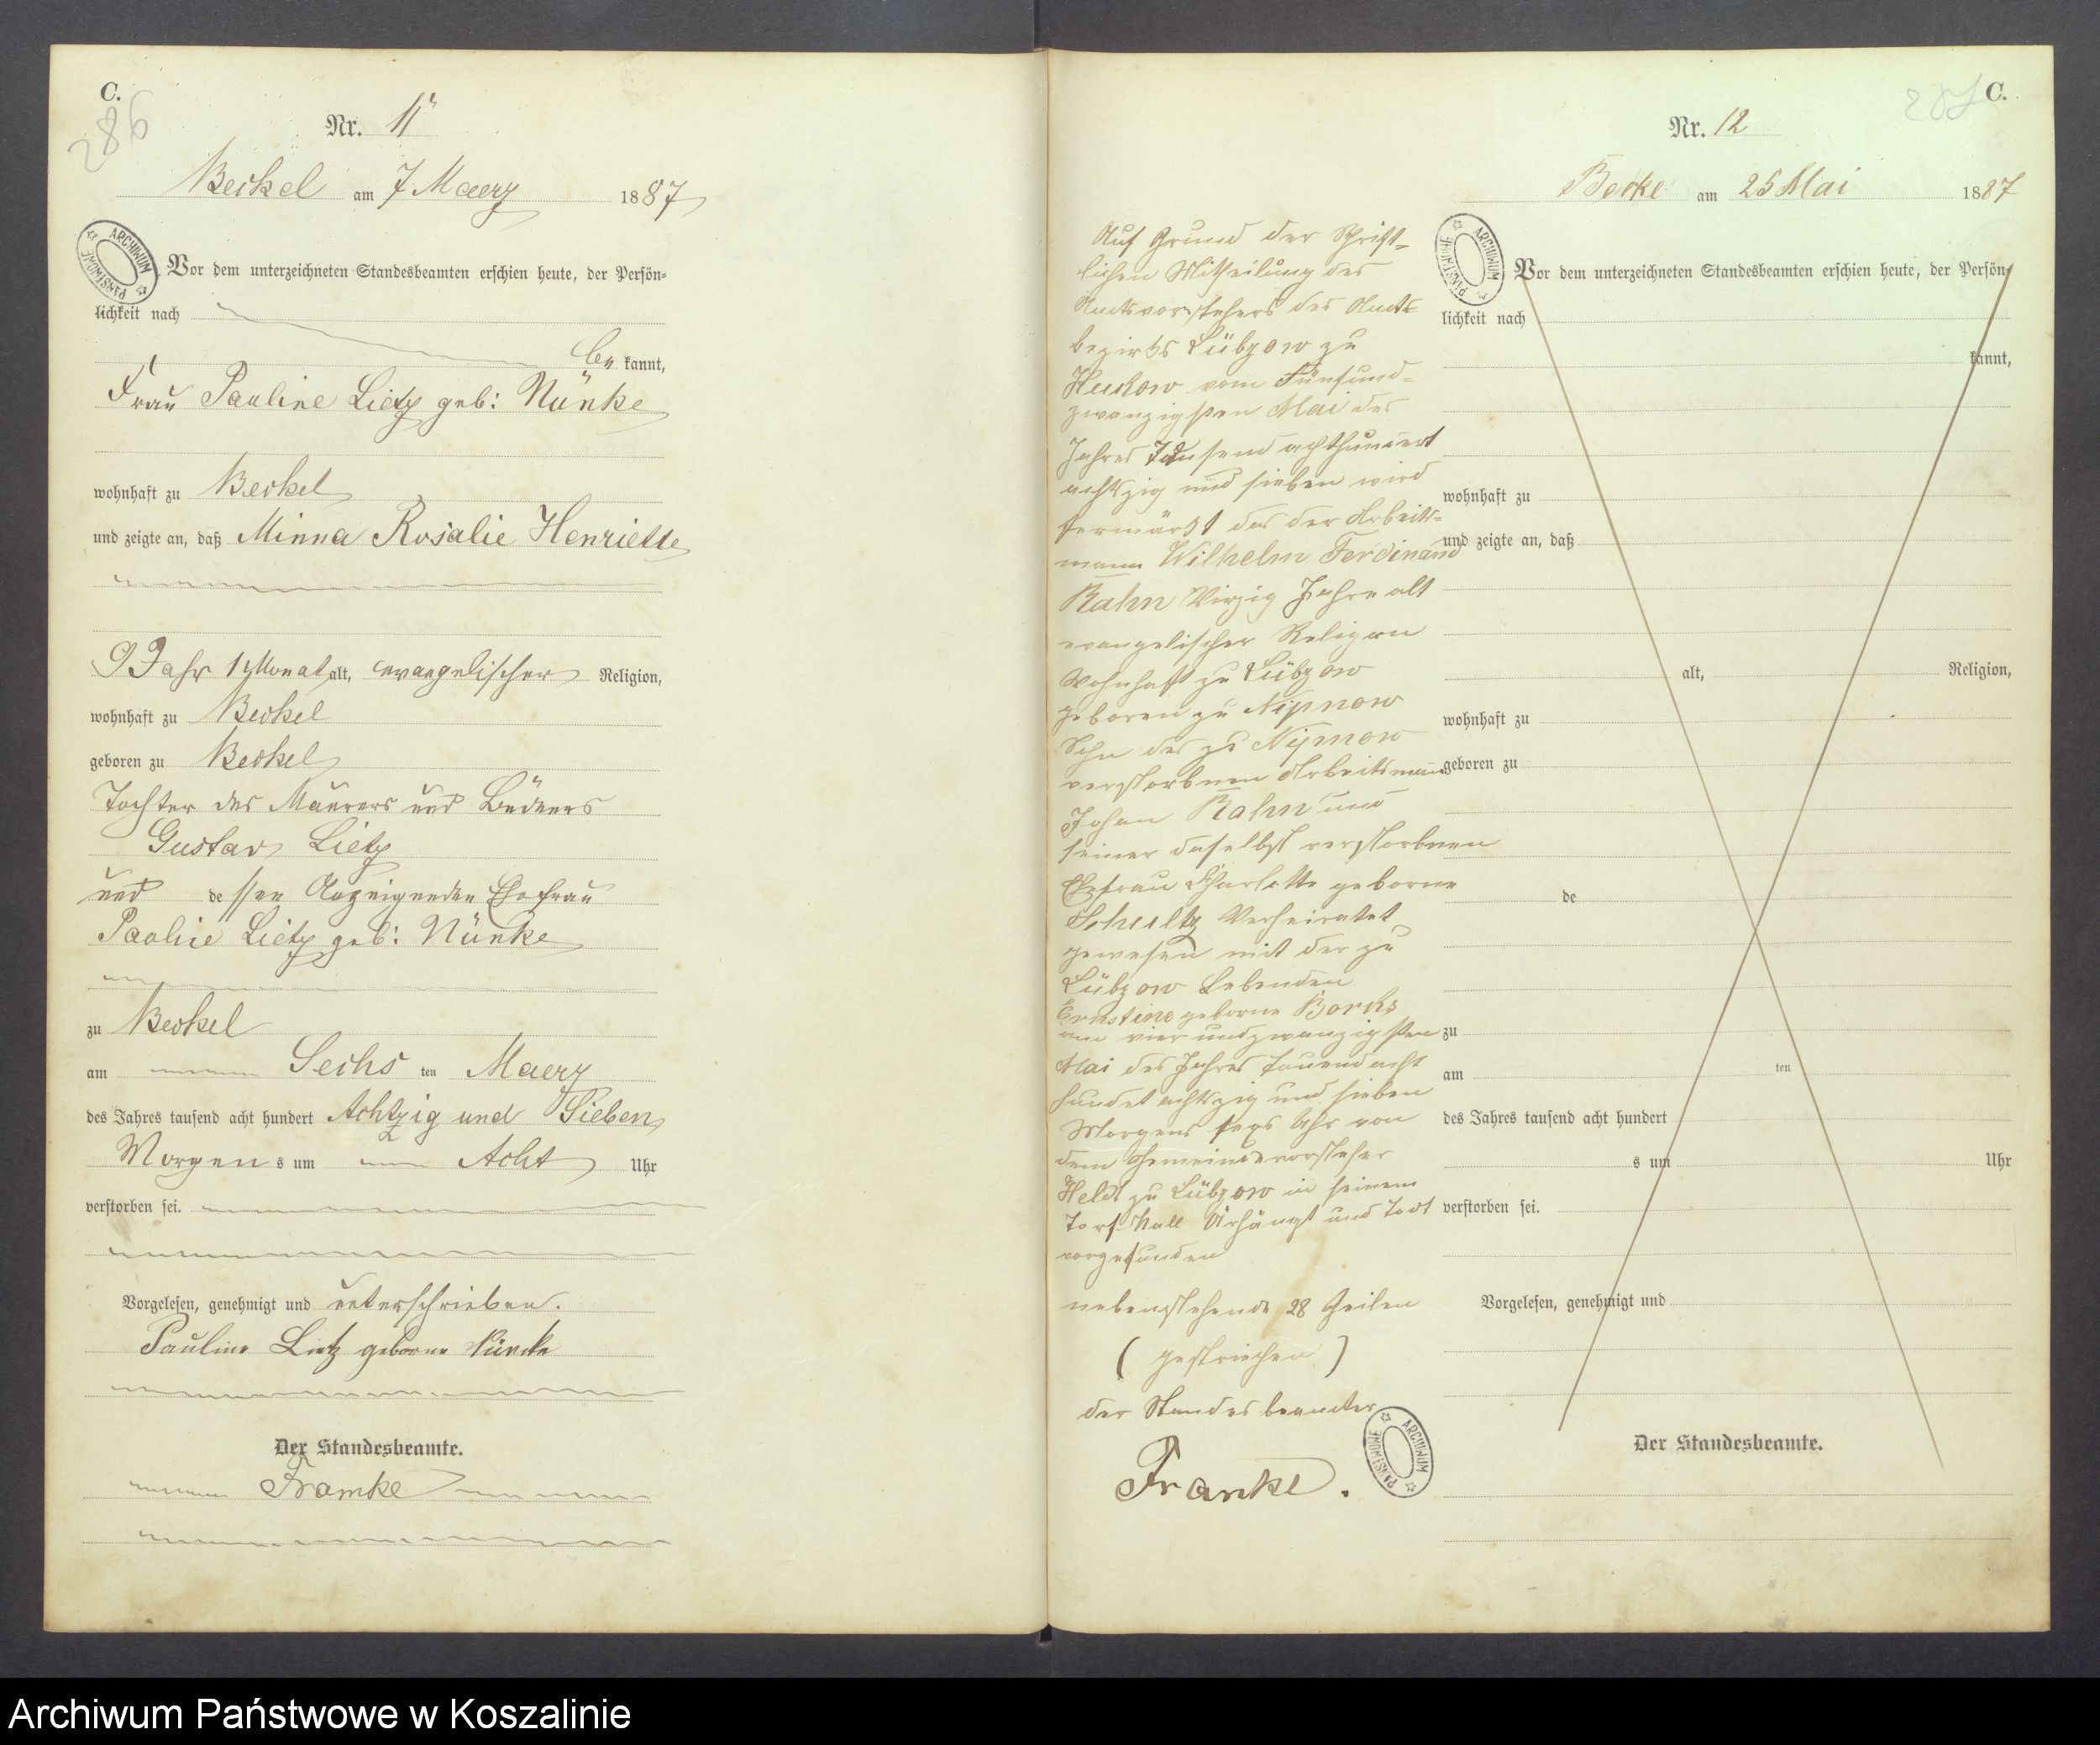 C.
286
Nr. 11
Beckel am 7 Maerz 1887
ARCHIWUM PAŃSTWOWE
Vor dem unterzeichneten Standesbeamten erschien heute, der Persön-
lichkeit nach
be kannt,
Frau Pauline Lietz geb: Nünke
wohnhaft zu Beckel
und zeigte an, daß Minna Rosalie Henriette
9 Jahr 1 Monat alt, evangelischer Religion,
wohnhaft zu Beckel
geboren zu Beckel
Tochter des Maurers und Büdners
Gustav Lietz
und de ssen Anzeigenden Ehefrau
Pauline Lietz geb: Nünke
zu Beckel
am Sechs ten Maerz
des Jahres tausend acht hundert Achtzig und Sieben
Morgen s um Acht Uhr
verstorben sei.
Vorgelesen, genehmigt und unterschrieben.
Pauline Lietz geborne Nünke
Der Standesbeamte.
Framke
C.
287
Nr. 12
Becke am 25 Mai 1887
ARCHIWUM PAŃSTWOWE
Vor dem unterzeichneten Standesbeamten erschien heute, der Persön-
lichkeit nach
kannt,
wohnhaft zu
und zeigte an, daß
alt, Religion,
wohnhaft zu
geboren zu
de
zu
am ten
des Jahres tausend acht hundert
s um Uhr
verstorben sei.
Vorgelesen, genehmigt und
Der Standesbeamte.
Auf Grund der Schrift-
lichen Mittheilung des
Amtsvorstehers des Amts-
bezirks Lübzow zu
vom Fünfund-
zwanzigsten Mai des
Jahres Tausend achthundert
achtzig und sieben wird
fermärkt das der Arbeits-
mann Wilhelm Ferdinand
Rahn Virzig Jahre alt
evangelischer Religion
Wohnhaft zu Lübzow
geboren zu Nipnow
Sohn des zu Nipnow
verstorbnen Arbeitsmann
Johan Rahn und
seiner daselbst verstorbnen
Ehefrau Charlotte geborne
Schultz Verheiratet
gewesen mit der zu
Lübzow Lebenden
Ernstine geborne Borchs
am vier undzwanzigsten
Mai des Jahres tausend acht
hundet achtzig und sieben
Morgens sechs Uhr von
dem Gemeindevorsteher
Heldt zu Lübzow in seinem
Torfstall Erhängt und Todt
vorgefunden
nebenstehende 28 Zeilen
( gestrichen )
der Standesbeamter
Franke.
ARCHIWUM PAŃSTWOWE
Archiwum Państwowe w Koszalinie